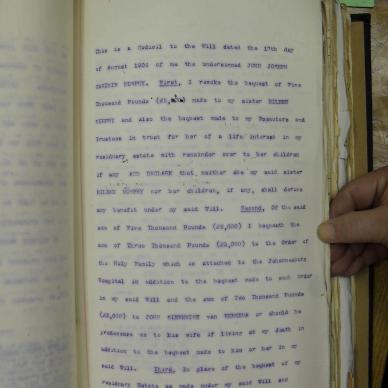 This is a Codicil to the Will dated the 17th day
of August 1926 of me the undersigned JOHN JOSEPH
MURPHY. First, I revoke the bequest of Five
Thousand Pounds made to my sister EILEEN
MURPHY and also the bequest made to my Executors and
Trustees in trust for her of a life interest in my
residuary estate with remainder over to her children
if any AND DECLARE that neither she my said sister
EILEEN MURPHY nor her children, if any, shall derive
any benefit under my said Will. Second, Of the said
sum of Five Thousand Pounds (£5,000) I bequeath the
sum of Three Thousand Pounds (£3,000) to the Order of
the Holy Family which is attached to the Johannesburg
Hospital in addition to the bequest made to such Order
in my said Will and the sum of Two Thousand Pounds
(£2,000) to JOHN van or should he
predecease me to his wife if living at my death in
addition to the bequest made to him or her in my
said Will. Third, In place of the bequest of my
residuary Estate as made under my said Will and